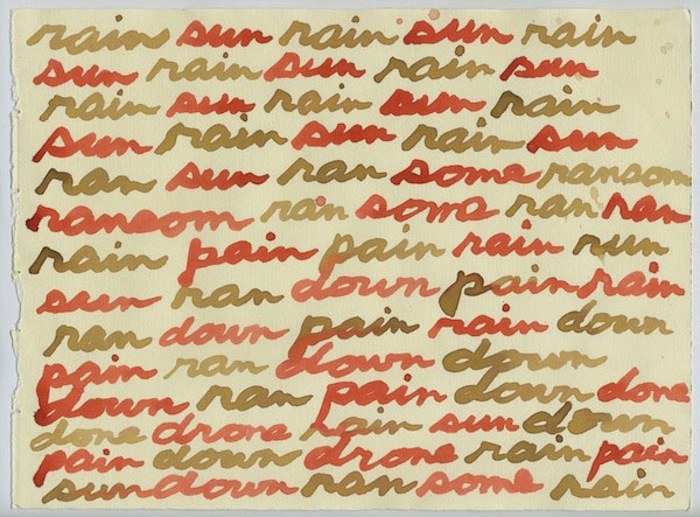 rain sun rain sun rain
sun rain sun rain sun
rain sun rain sun rain
sun rain sun rain sun
ran sun ran some ransom
ransom ran some ran ran
rain pain pain rain run
sun ran down pain rain
ran down pain rain down
pain ran down down
down ran pain down done
done drone rain sun down
pain down drone rain pain
sundown ran some rain